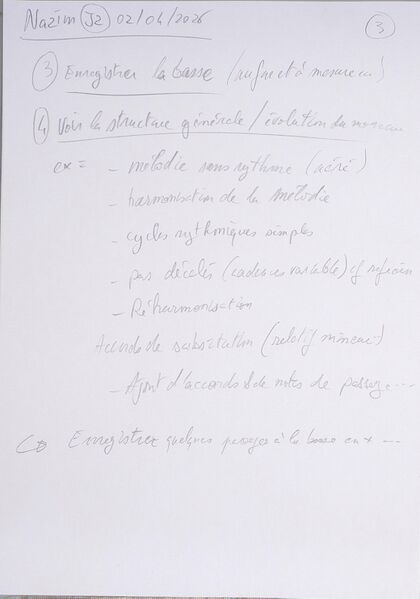 Nazim J2 02/04/2026
3
3 Enregistrer la basse (au fur et à mesure
4 Voir la structure générale / évolution du morceau
ex = - mélodie sans rythme (aéré)
- harmonisation de la mélodie
- cycles rythmiques simples
- pas décalés (cadences variable) cf refrain
- Réharmonisation
Accords de substitution (relatif mineur)
- Ajout d'accords & de notes de passage ...
Enregistrer quelques passages à la basse en + ...